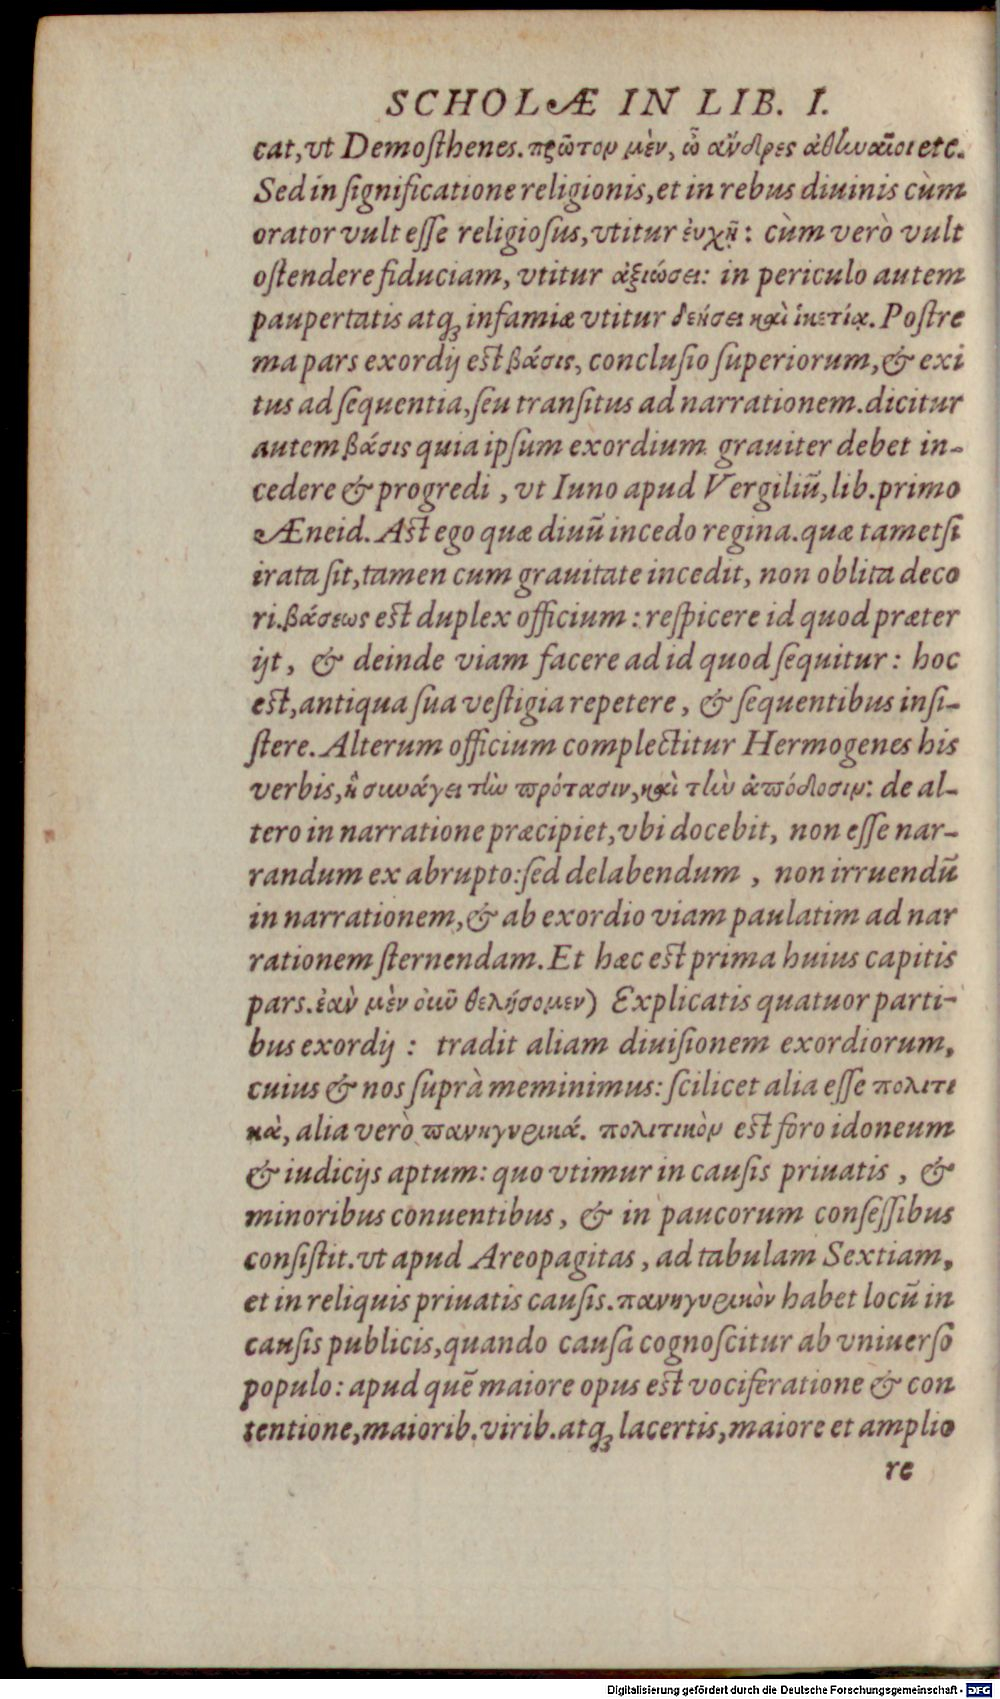 SCHOLÆ IN LIB. I.
cat, vt Demosthenes. πρῶτον μὲν, ὦ ἄνδρες ἀθηναῖοι etc.
Sed in significatione religionis, et in rebus diuinis cùm
orator vult esse religiosus, vtitur ἐυχῇ: cùm verò vult
ostendere fiduciam, vtitur ἀξιώσει: in periculo autem
paupertatis atq́; infamiæ vtitur δεήσει καὶ ἱκετίᾳ. Postre
ma pars exordij est βάσις, conclusio superiorum, & exi
tus ad sequentia, seu transitus ad narrationem. dicitur
autem βάσις quia ipsum exordium grauiter debet in-
cedere & progredi, vt Iuno apud Vergiliũ, lib. primo
Æneid. Ast ego quæ diuũ incedo regina. quæ tametsi
irata sit, tamen cum grauitate incedit, non oblita deco
ri. βάσεως est duplex officium: respicere id quod præter
ijt, & deinde viam facere ad id quod sequitur: hoc
est, antiqua sua vestigia repetere, & sequentibus insi-
stere. Alterum officium complectitur Hermogenes his
verbis, ἣ συνάγει τὴν πρότασιν, καὶ τὴν ἀπόδοσιν: de al-
tero in narratione præcipiet, vbi docebit, non esse nar-
randum ex abrupto: sed delabendum, non irruendũ
in narrationem, & ab exordio viam paulatim ad nar
rationem sternendam. Et hæc est prima huius capitis
pars. ἐὰν μὲν οὖν θελήσομεν) Explicatis quatuor parti-
bus exordij: tradit aliam diuisionem exordiorum,
cuius & nos suprà meminimus: scilicet alia esse πολιτι
κὰ, alia verò πανηγυρικά. πολιτικὸν est foro idoneum
& iudicijs aptum: quo vtimur in causis priuatis, &
minoribus conuentibus, & in paucorum consessibus
consistit. vt apud Areopagitas, ad tabulam Sextiam,
et in reliquis priuatis causis. πανηγυρικὸν habet locũ in
causis publicis, quando causa cognoscitur ab vniuerso
populo: apud quẽ maiore opus est vociferatione & con
tentione, maiorib. virib. atq́; lacertis, maiore et amplio
re
Digitalisierung gefördert durch die Deutsche Forschungsgemeinschaft - DFG